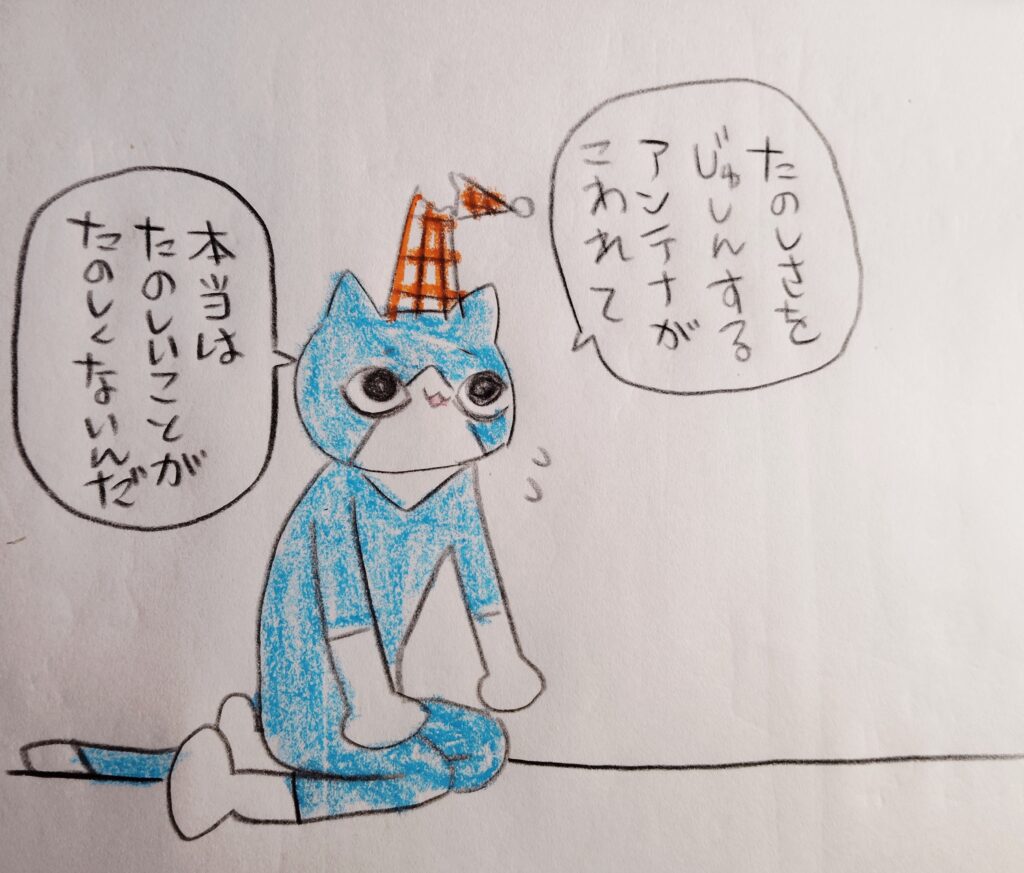 たのしさを
じゅしんする
アンテナが
こわれて
本当は
たのしいことが
たのしくないんだ